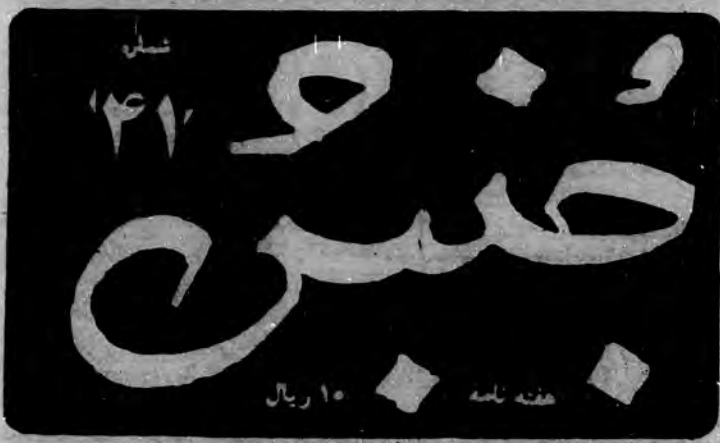 شماره
'۴۱'
جُنبش
هفته نامه ۱۰ ریال